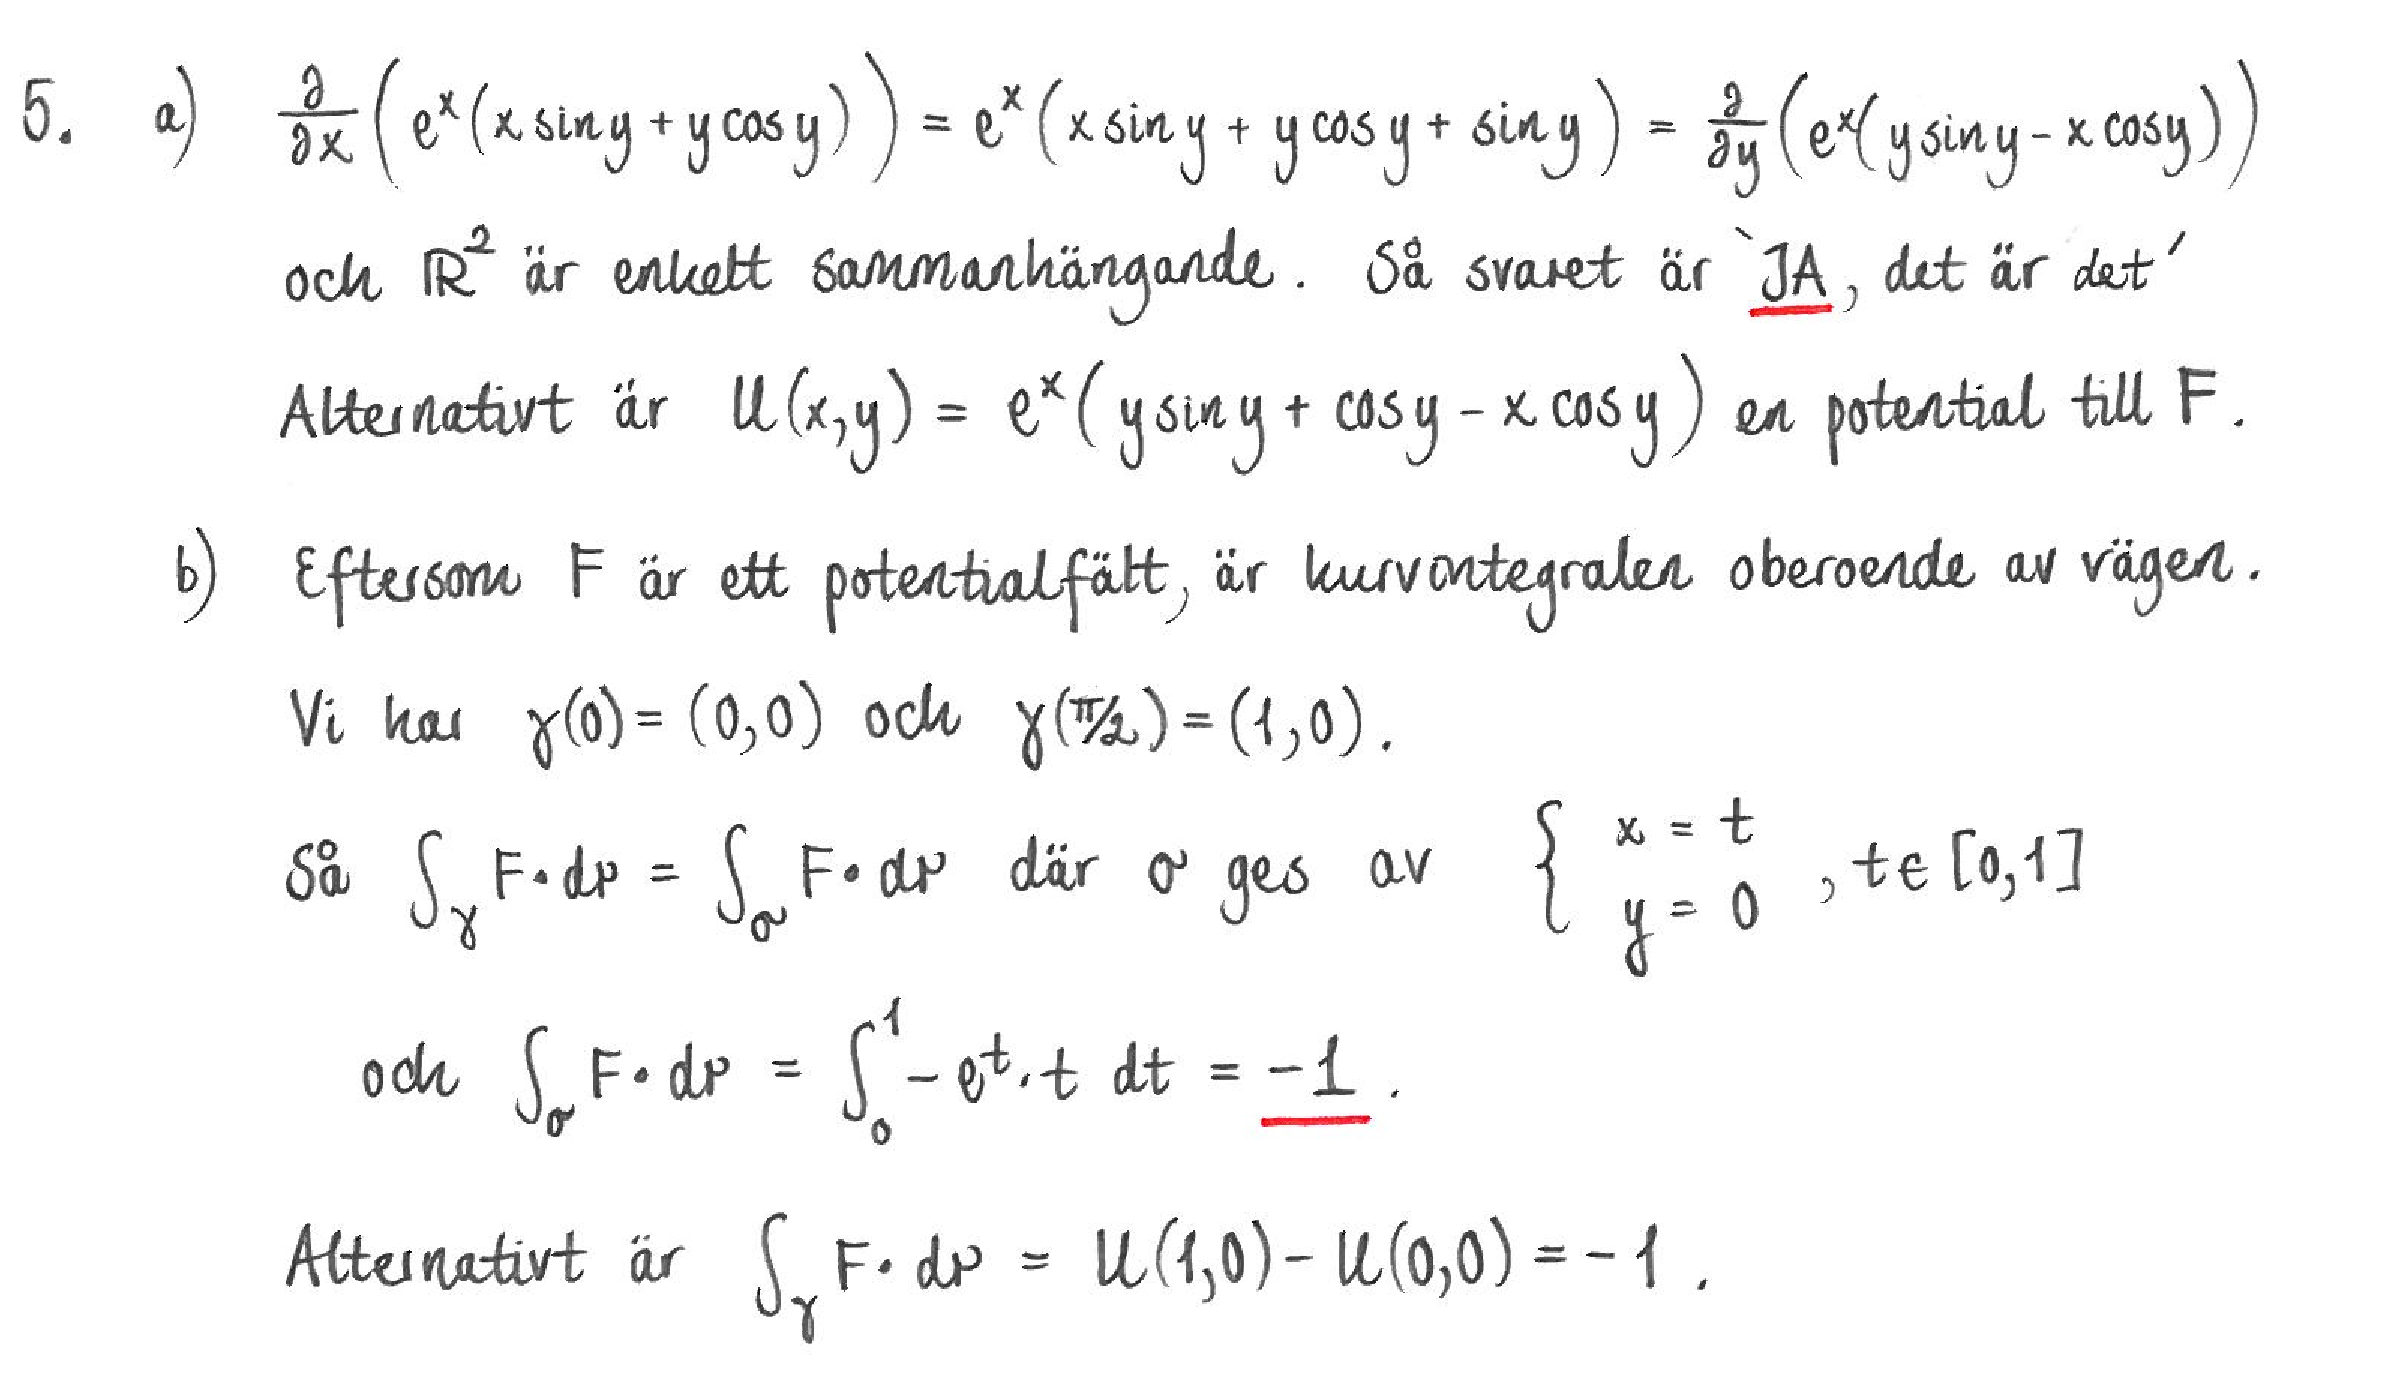 5. a) ∂/∂x (e^x (x sin y + y cos y)) = e^x (x sin y + y cos y + sin y) = ∂/∂y (e^x (y sin y - x cos y))
och ℝ² är enkelt sammanhängande. Så svaret är `JA, det är det´
Alternativt är U(x,y) = e^x (y sin y + cos y - x cos y) en potential till F.
b) Eftersom F är ett potentialfält, är kurvintegralen oberoende av vägen.
Vi har γ(0) = (0,0) och γ(π/2) = (1,0).
Så ∫_γ F • dr = ∫_σ F • dr där σ ges av { x = t, y = 0 , t ∈ [0,1]
och ∫_σ F • dr = ∫_0^1 - e^t · t dt = -1.
Alternativt är ∫_γ F • dr = U(1,0) - U(0,0) = -1.